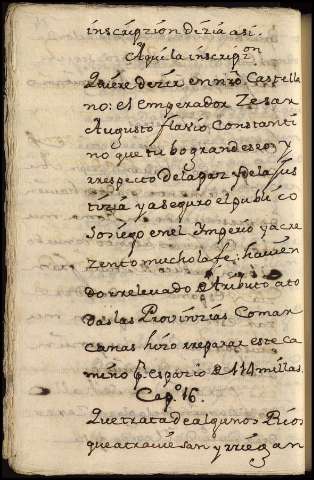 inscripzion dizia asi.
Aqui la inscripzon
Quiere dezir en nro Castella
no: el emperador Zesar
Augusto flavio Constanti
no que tubo gran deseo y
rrespecto de la paz y de la jus
tizia y aseguro el publico
sosiego en el Ymperio y acre
zento mucho la fe; havien
do rrelevado de tributo a to
das las Provinzias Comar
canas hizo rreparar este ca
mino por espazio de 114 millas.
Capo. 16.
Que trata de algunos Rios
que atraviesan y rriegan